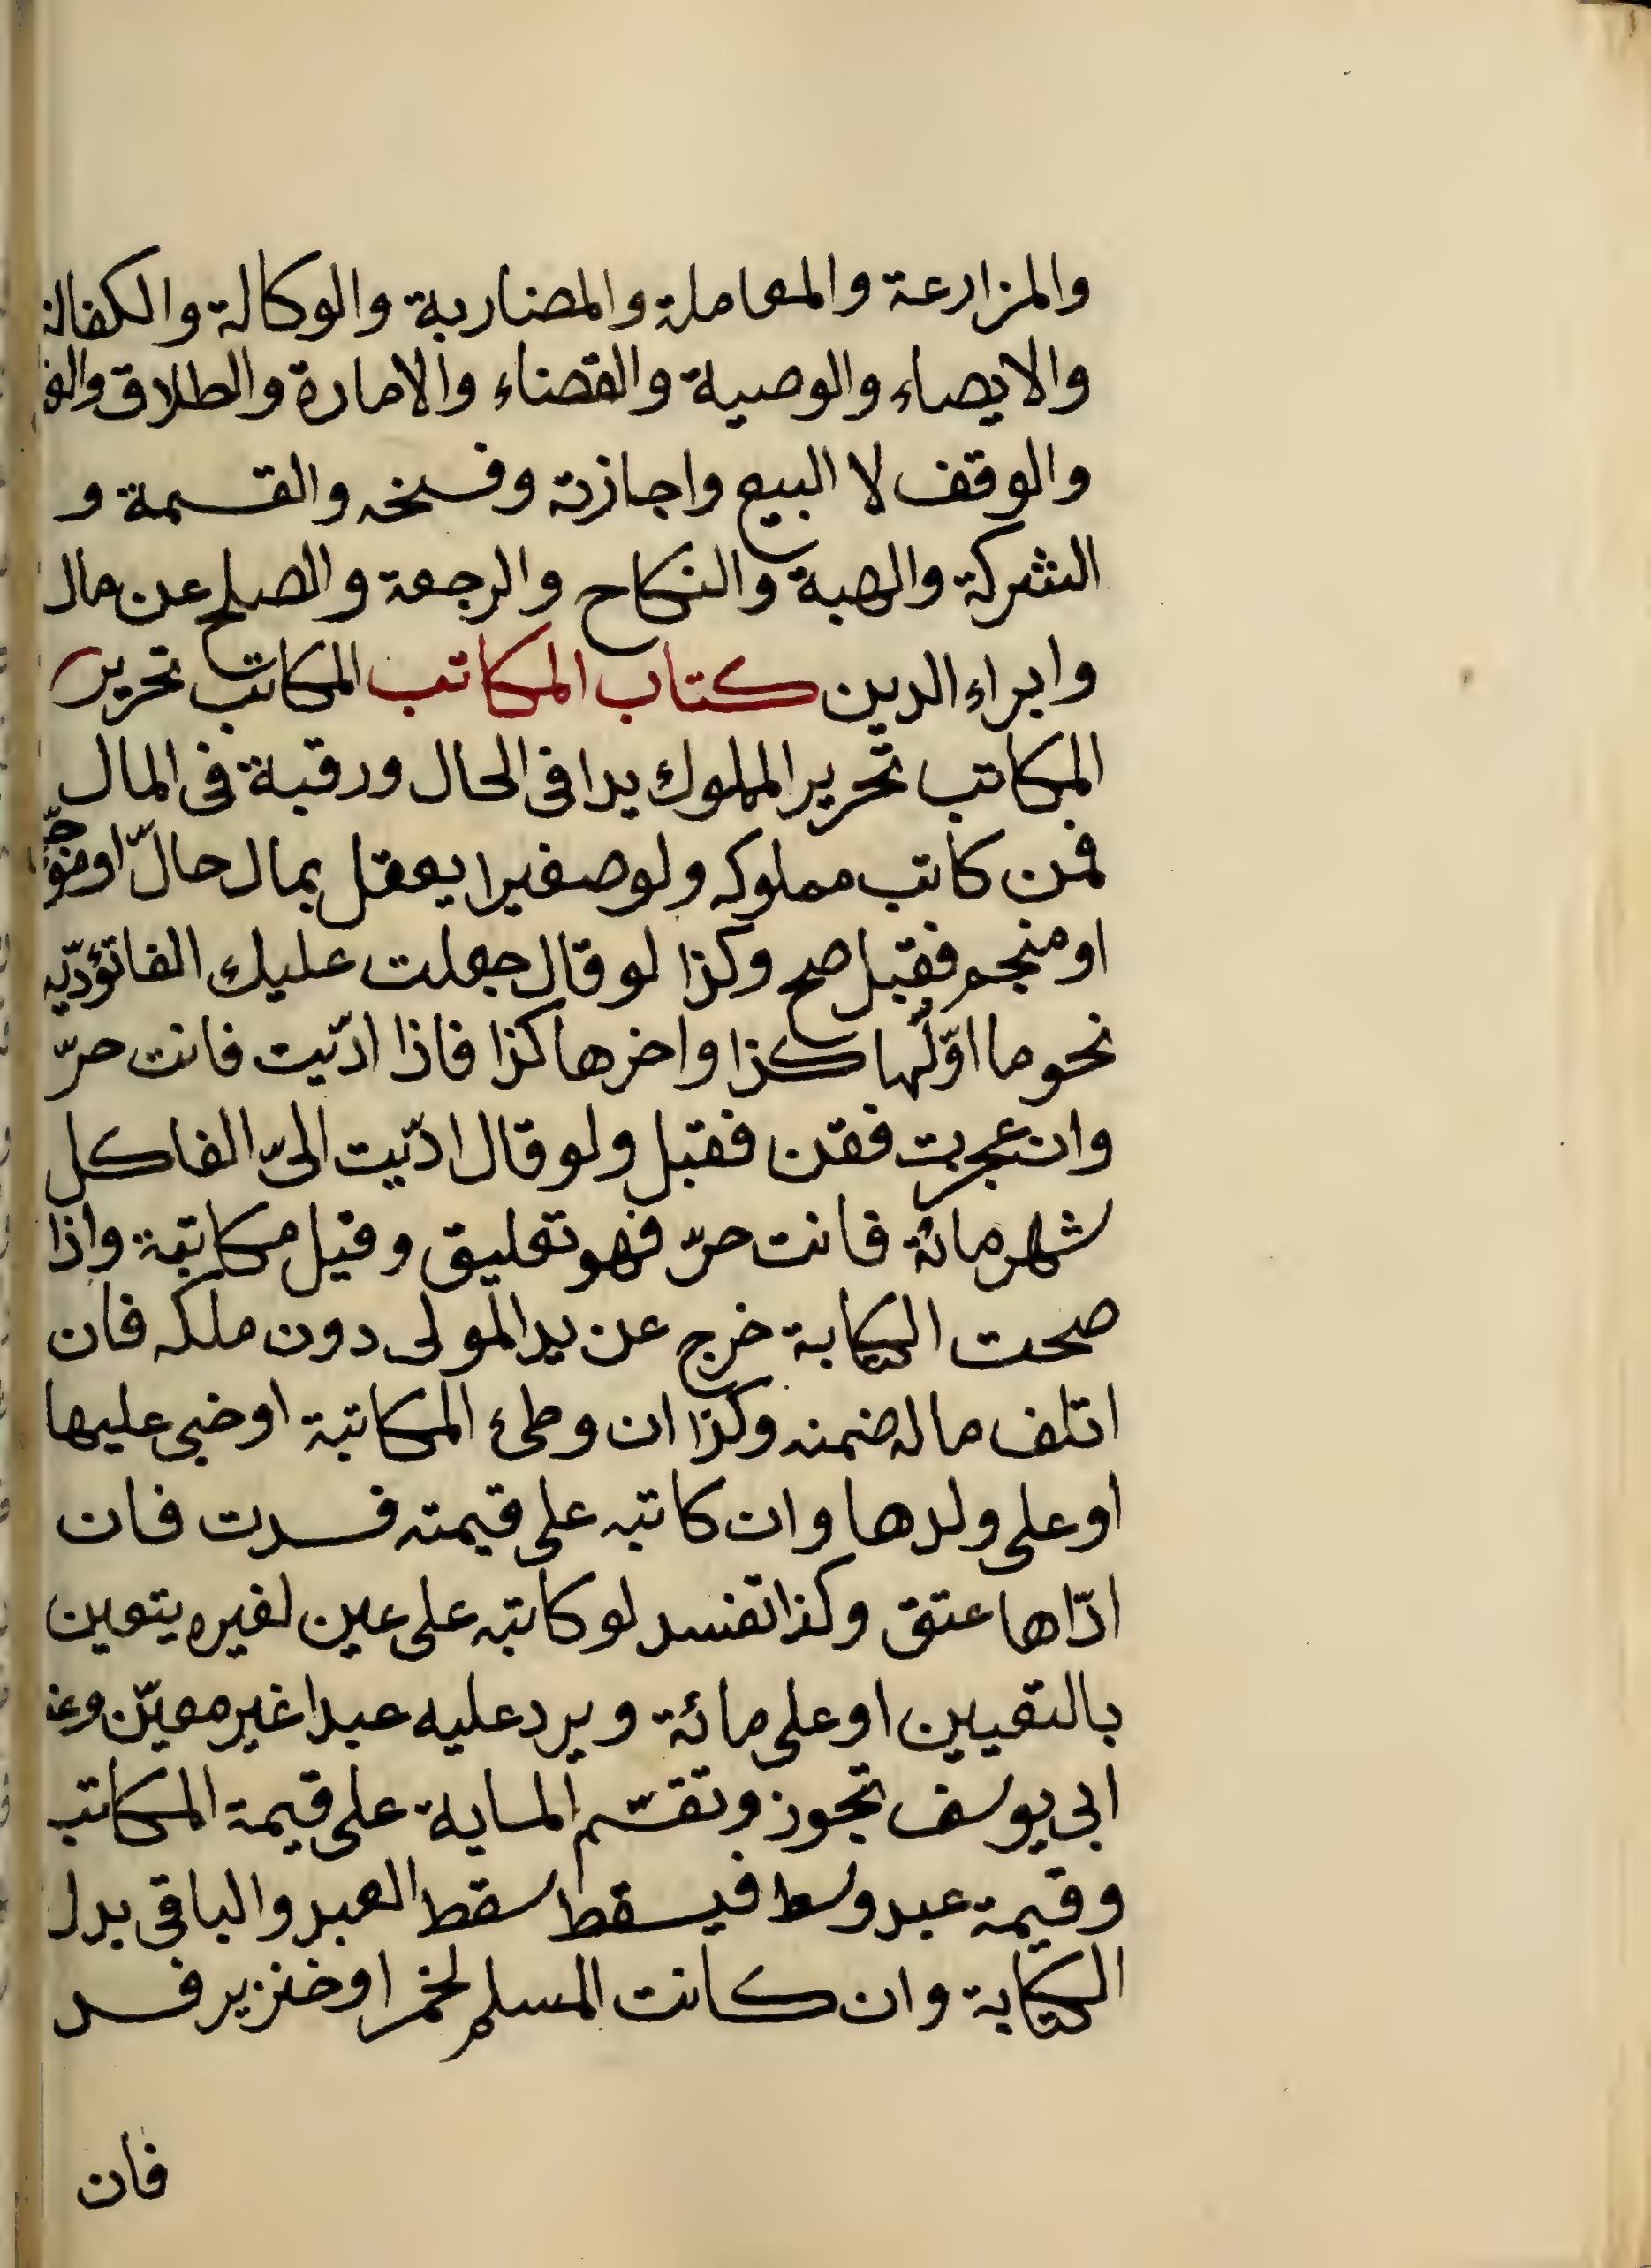 والمزارعة والمعاملة والمضاربة والوكالة والكفالة
والايصاء والوصية والقضاء والامارة والطلاق
والوقف لا البيع واجازته وفسخه والقسمة و
الشركة والهبة والنكاح والرجعة والصلح عن مال
وابراء الدين كتاب المكاتب المكاتب تحرير
المكاتب تحرير المملوك يدا فى الحال ورقبة فى المال
فمن كاتب مملوكه ولو صغيرا يعقل بمال حالّ او
او منجم فقبل صح وكذا لو قال جعلت عليك الفا تؤدّيه
نحوما اوّلّها كذا واخرها كذا فاذا ادّيت فانت حرّ
وان عجزت فقن فقبل ولو قال ادّيت الىّ الفا كل
شهر مائة فانت حرّ فهو تعليق وقيل مكاتبة واذا
صحت الكتابة خرج عن يد المولى دون ملكه فان
اتلف ماله ضمنه وكذا ان وطئ المكاتبة او خبى عليها
او على ولدها وان كاتبه على قيمته فسدت فان
ادّاها عتق وكذا تفسد لو كاتبه على عين لغيره يتعين
بالتعيين او على مائة ويرد عليه عبدا غير معيّن
ابى يوسف تجوز وتقسّم الماية على قيمة المكاتب
وقيمة عبد وسط فيسقط سقط العبد والباقى بدل
الكتابة وان كانت المسلم لخمر او خنزير فسد
فان